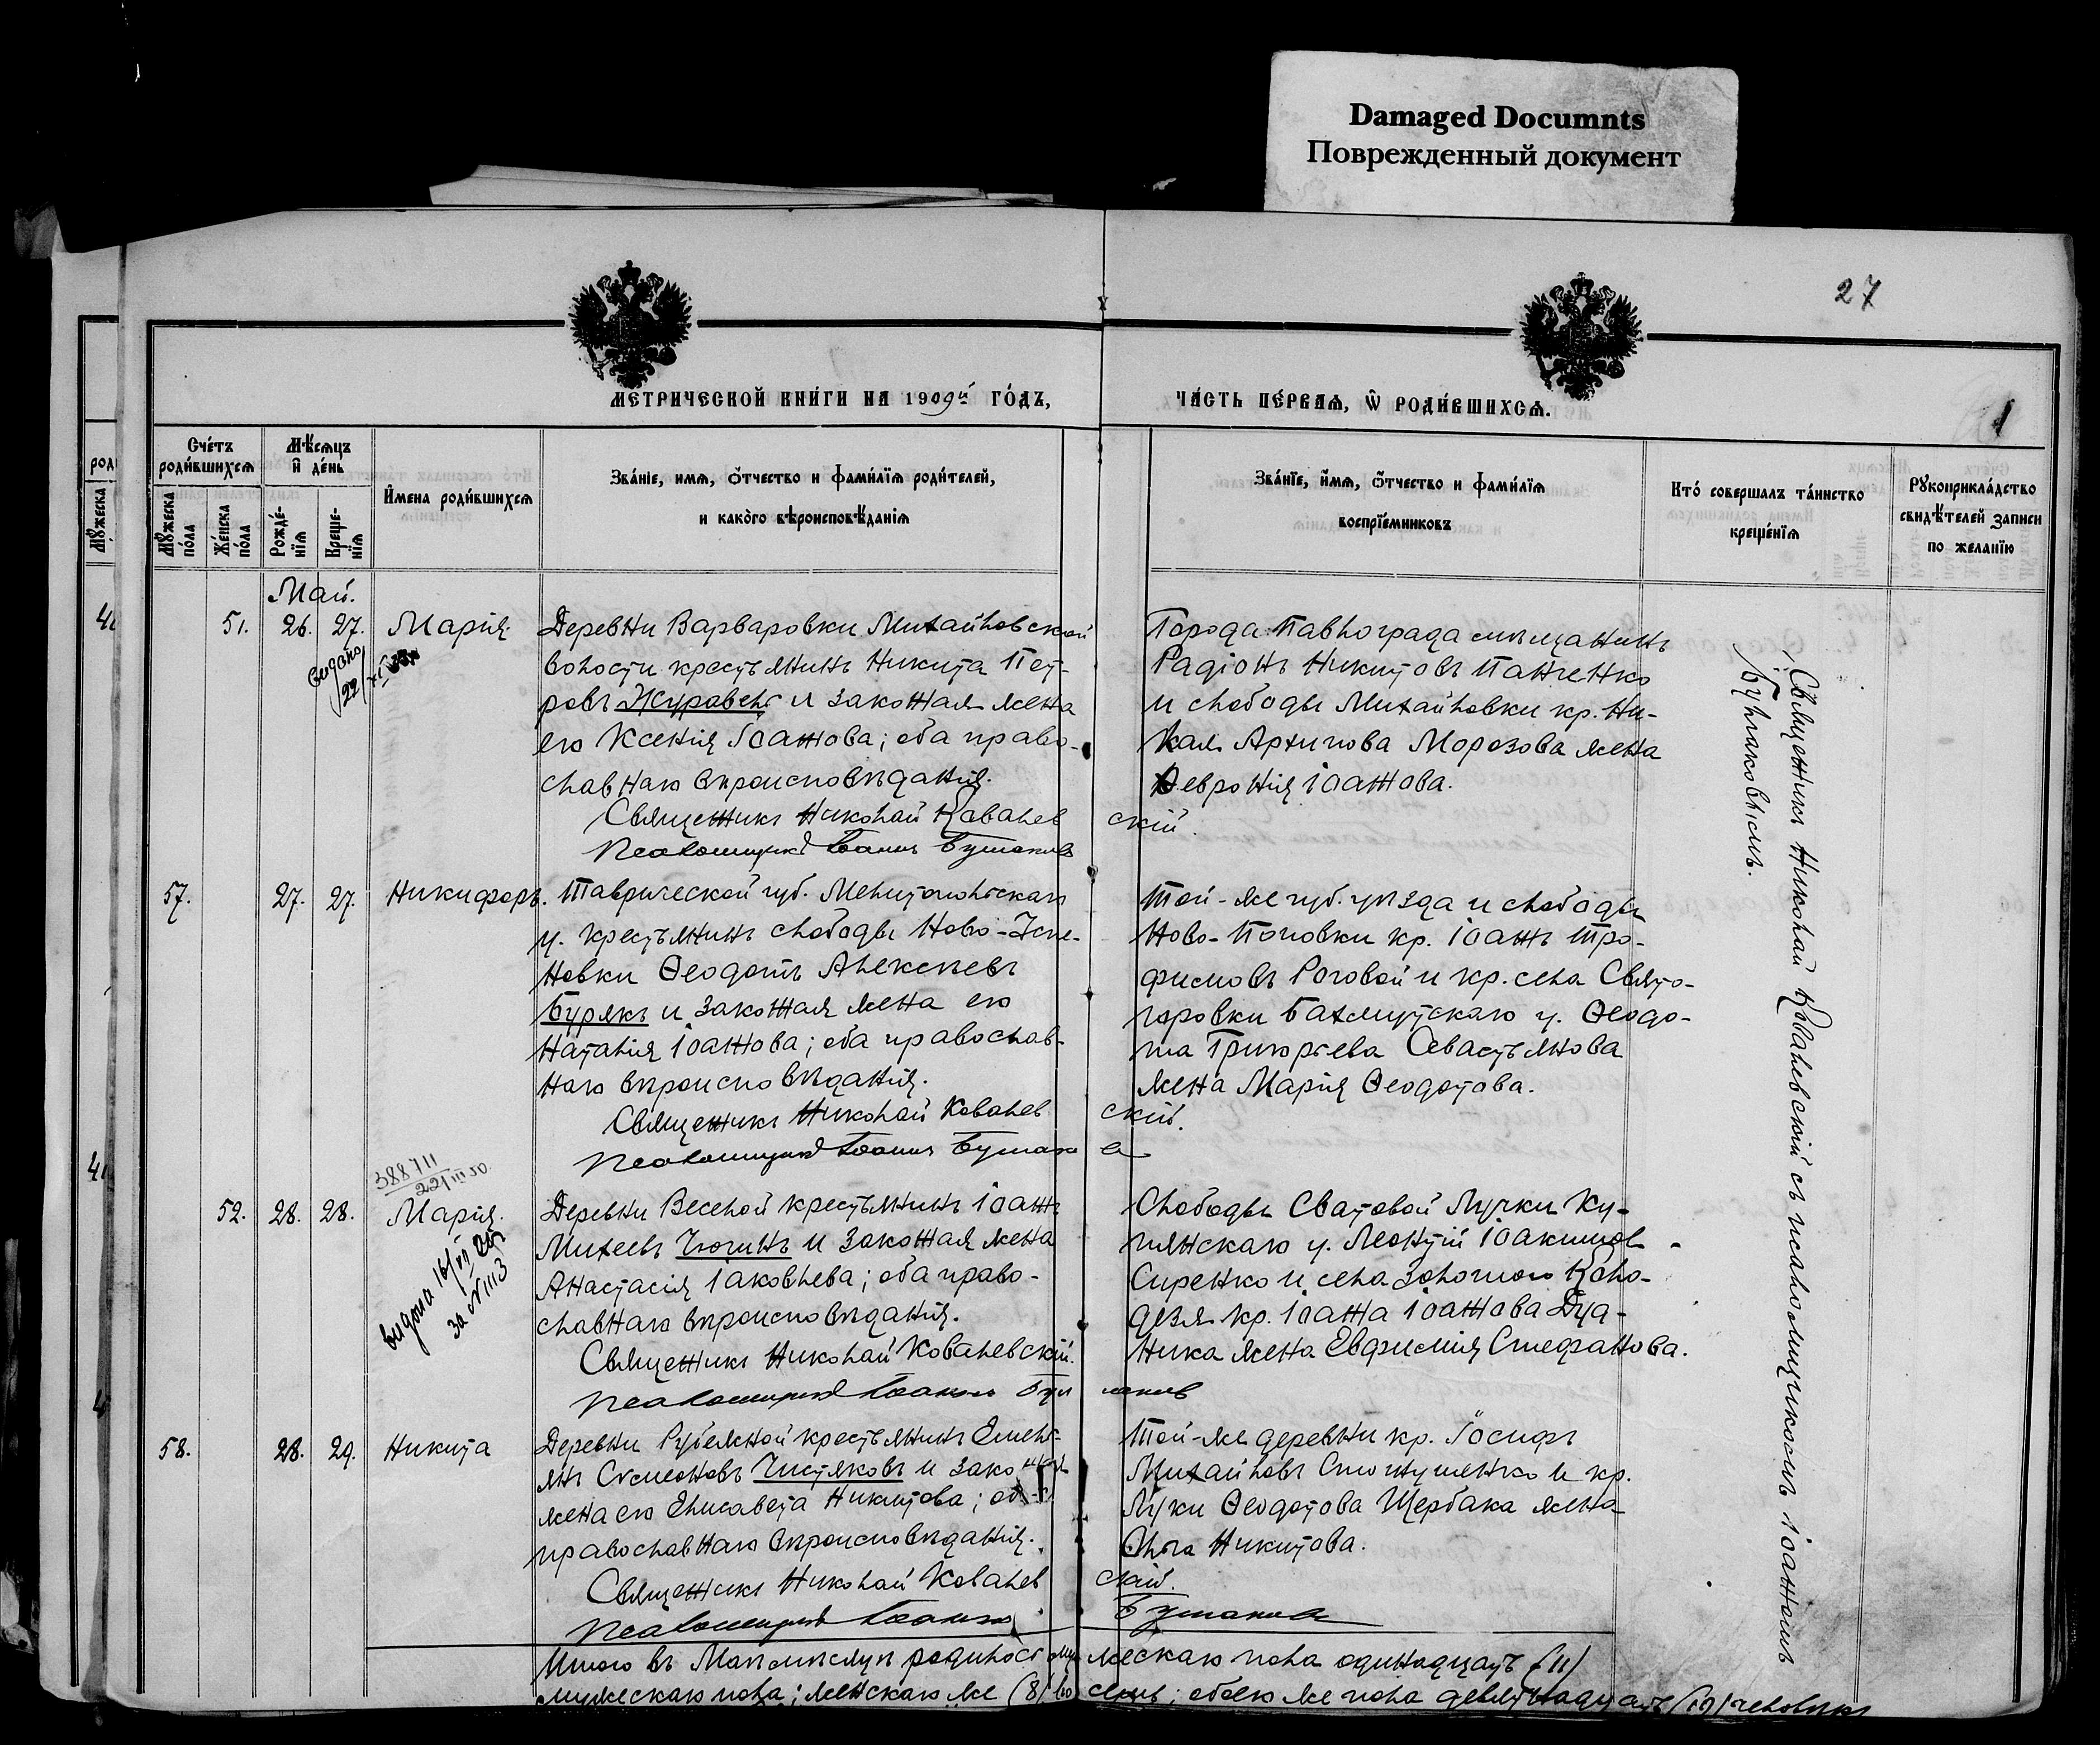 Damaged Documnts
Поврежденный документ
27
МЕТРИЧЕСКОЙ КНИГИ НА 1909й ГОДЪ,
ЧАСТЬ ПЕРВАЯ, Ѡ РОДИВШИХСЯ.
1
Счетъ родившихся
Мѣсяцъ и день
Мужеска пола
Женска пола
Рожденія
Крещенія
Имена родившихся
Званіе, имя, отчество и фамилія родителей,
и какого вѣроисповѣданія
Званіе, имя, отчество и фамилія
воспріемниковъ
Кто совершалъ таинство
крещенія
Рукоприкладство
свидѣтелей записи
по желанію
Май.
51. 26. 27. Марія
видано
22/XI
Деревни Варваровки Михайловской
волости крестьянинъ Никита Пет-
ровъ Журавель и законная жена
его Ксенія Іоаннова; оба право-
славнаго вѣроисповѣданія.
Священникъ Николай Ковалев
Псаломщикъ Іоаннъ Булаковъ
Города Павлограда мѣщанинъ
Радіонъ Никитовъ Панченко
и слободы Михайловки кр. Ни-
колая Архипова Морозова жена
Февронія Іоаннова.
скій.
57. 27. 27. Никифоръ.
Таврической губ. Мелитопольскаго
у. крестьянинъ слободы Ново-Успе-
новки Ѳеодотъ Алексѣевъ
Бурякъ и законная жена его
Наталія Іоаннова; оба православ-
наго вѣроисповѣданія.
Священникъ Николай Ковалев
Псаломщикъ Іоаннъ Булако
Той-же губ. уѣзда и слободы
Ново-Поповки кр. Іоаннъ Тро-
фимовъ Роговой и кр. села Свято-
горовки Бахмутскаго у. Ѳеодо-
та Григорьева Севастьянова
жена Марія Ѳеодотова.
скій.
в
388711
22/III 50.
52. 28. 28. Марія.
видана 16/VI
за № 1113
Деревни Веселой крестьянинъ Іоаннъ
Михеевъ Чюпинъ и законная жена
Анастасія Іаковлева; оба право-
славнаго вѣроисповѣданія.
Священникъ Николай Ковалевскій.
Псаломщикъ Іоаннъ Бул
Слободы Сватовой Лучки Ку-
пянскаго у. Леонтій Іоакимов
Сиренко и села Золотого Коло-
дезя кр. Іоанна Іоаннова Дуд-
ника жена Евфимія Стефанова.
аковъ
58. 28. 29. Никита
Деревни Рубежной крестьянинъ Емель-
янъ Симеоновъ Чистяковъ и законная
жена его Елисавета Никитова; оба
православнаго вѣроисповѣданія.
Священникъ Николай Ковалев
Псаломщикъ Іоаннъ
Той-же деревни кр. Іосифъ
Михайловъ и кр.
Луки Ѳеодотова Щербака жена
Ольга Никитова.
скій.
Булаковъ
Священникъ Николай Ковалевскій съ псаломщикомъ Іоанномъ
Булаковымъ.
Итого въ Маѣ мѣсяцѣ родилось мужескаго пола одинадцать (11)
мужескаго пола; женскаго же (8) восемь; обоего же пола девятнадцать (19) человѣкъ